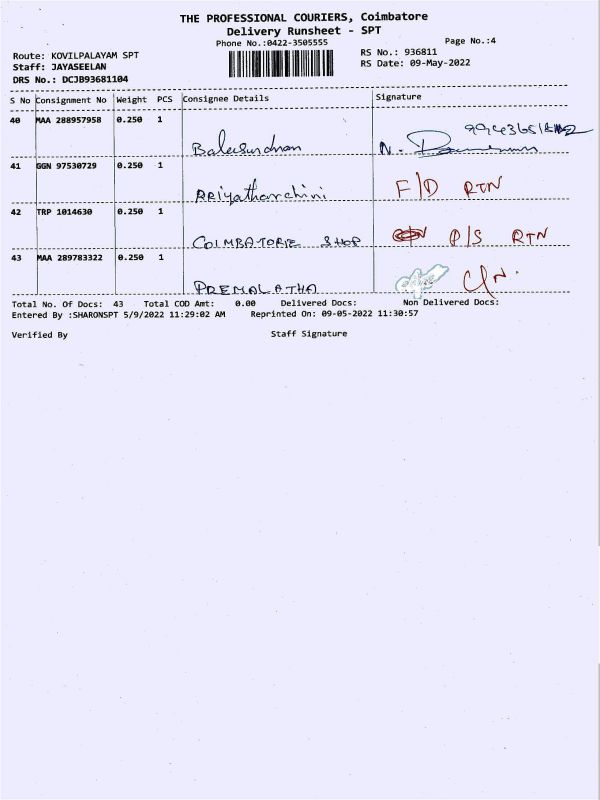 THE PROFESSIONAL COURIERS, Coimbatore
Delivery Runsheet - SPT
Phone No.:0422-3505555
Page No.:4
Route: KOVILPALAYAM SPT
RS No.: 936811
Staff: JAYASEELAN
RS Date: 09-May-2022
DRS No.: DCJB93681104
S No Consignment No Weight PCS Consignee Details Signature
40 MAA 288957958 0.250 1
N.
41 GGN 97530729 0.250 1
F/D RTN
42 TRP 1014630 0.250 1
COIMBATORE SHOP P/S RTN
43 MAA 289783322 0.250 1
PREMALATHA
Total No. Of Docs: 43 Total COD Amt: 0.00 Delivered Docs: Non Delivered Docs:
Entered By :SHARONSPT 5/9/2022 11:29:02 AM Reprinted On: 09-05-2022 11:30:57
Verified By Staff Signature